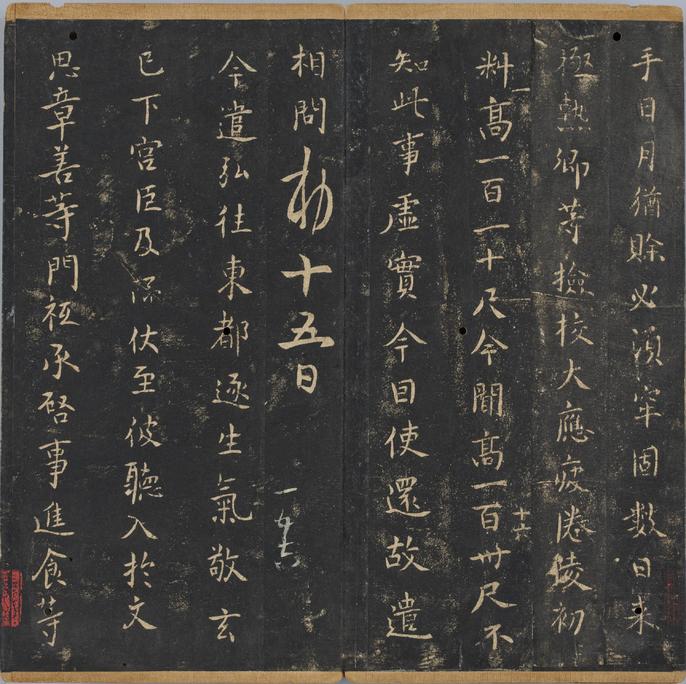 手日月猶賒必須牢固數日來
極熱卿等撿挍大應疲惓陵初
料高一百一十尺今聞高一百卅尺不
知此事虛實今因使還故遣
相問勑十五日
今遣弘往東都逐生氣敬玄
已下宮臣及仗至彼聽入於文
思章善等門祗承啓事進食等
十六